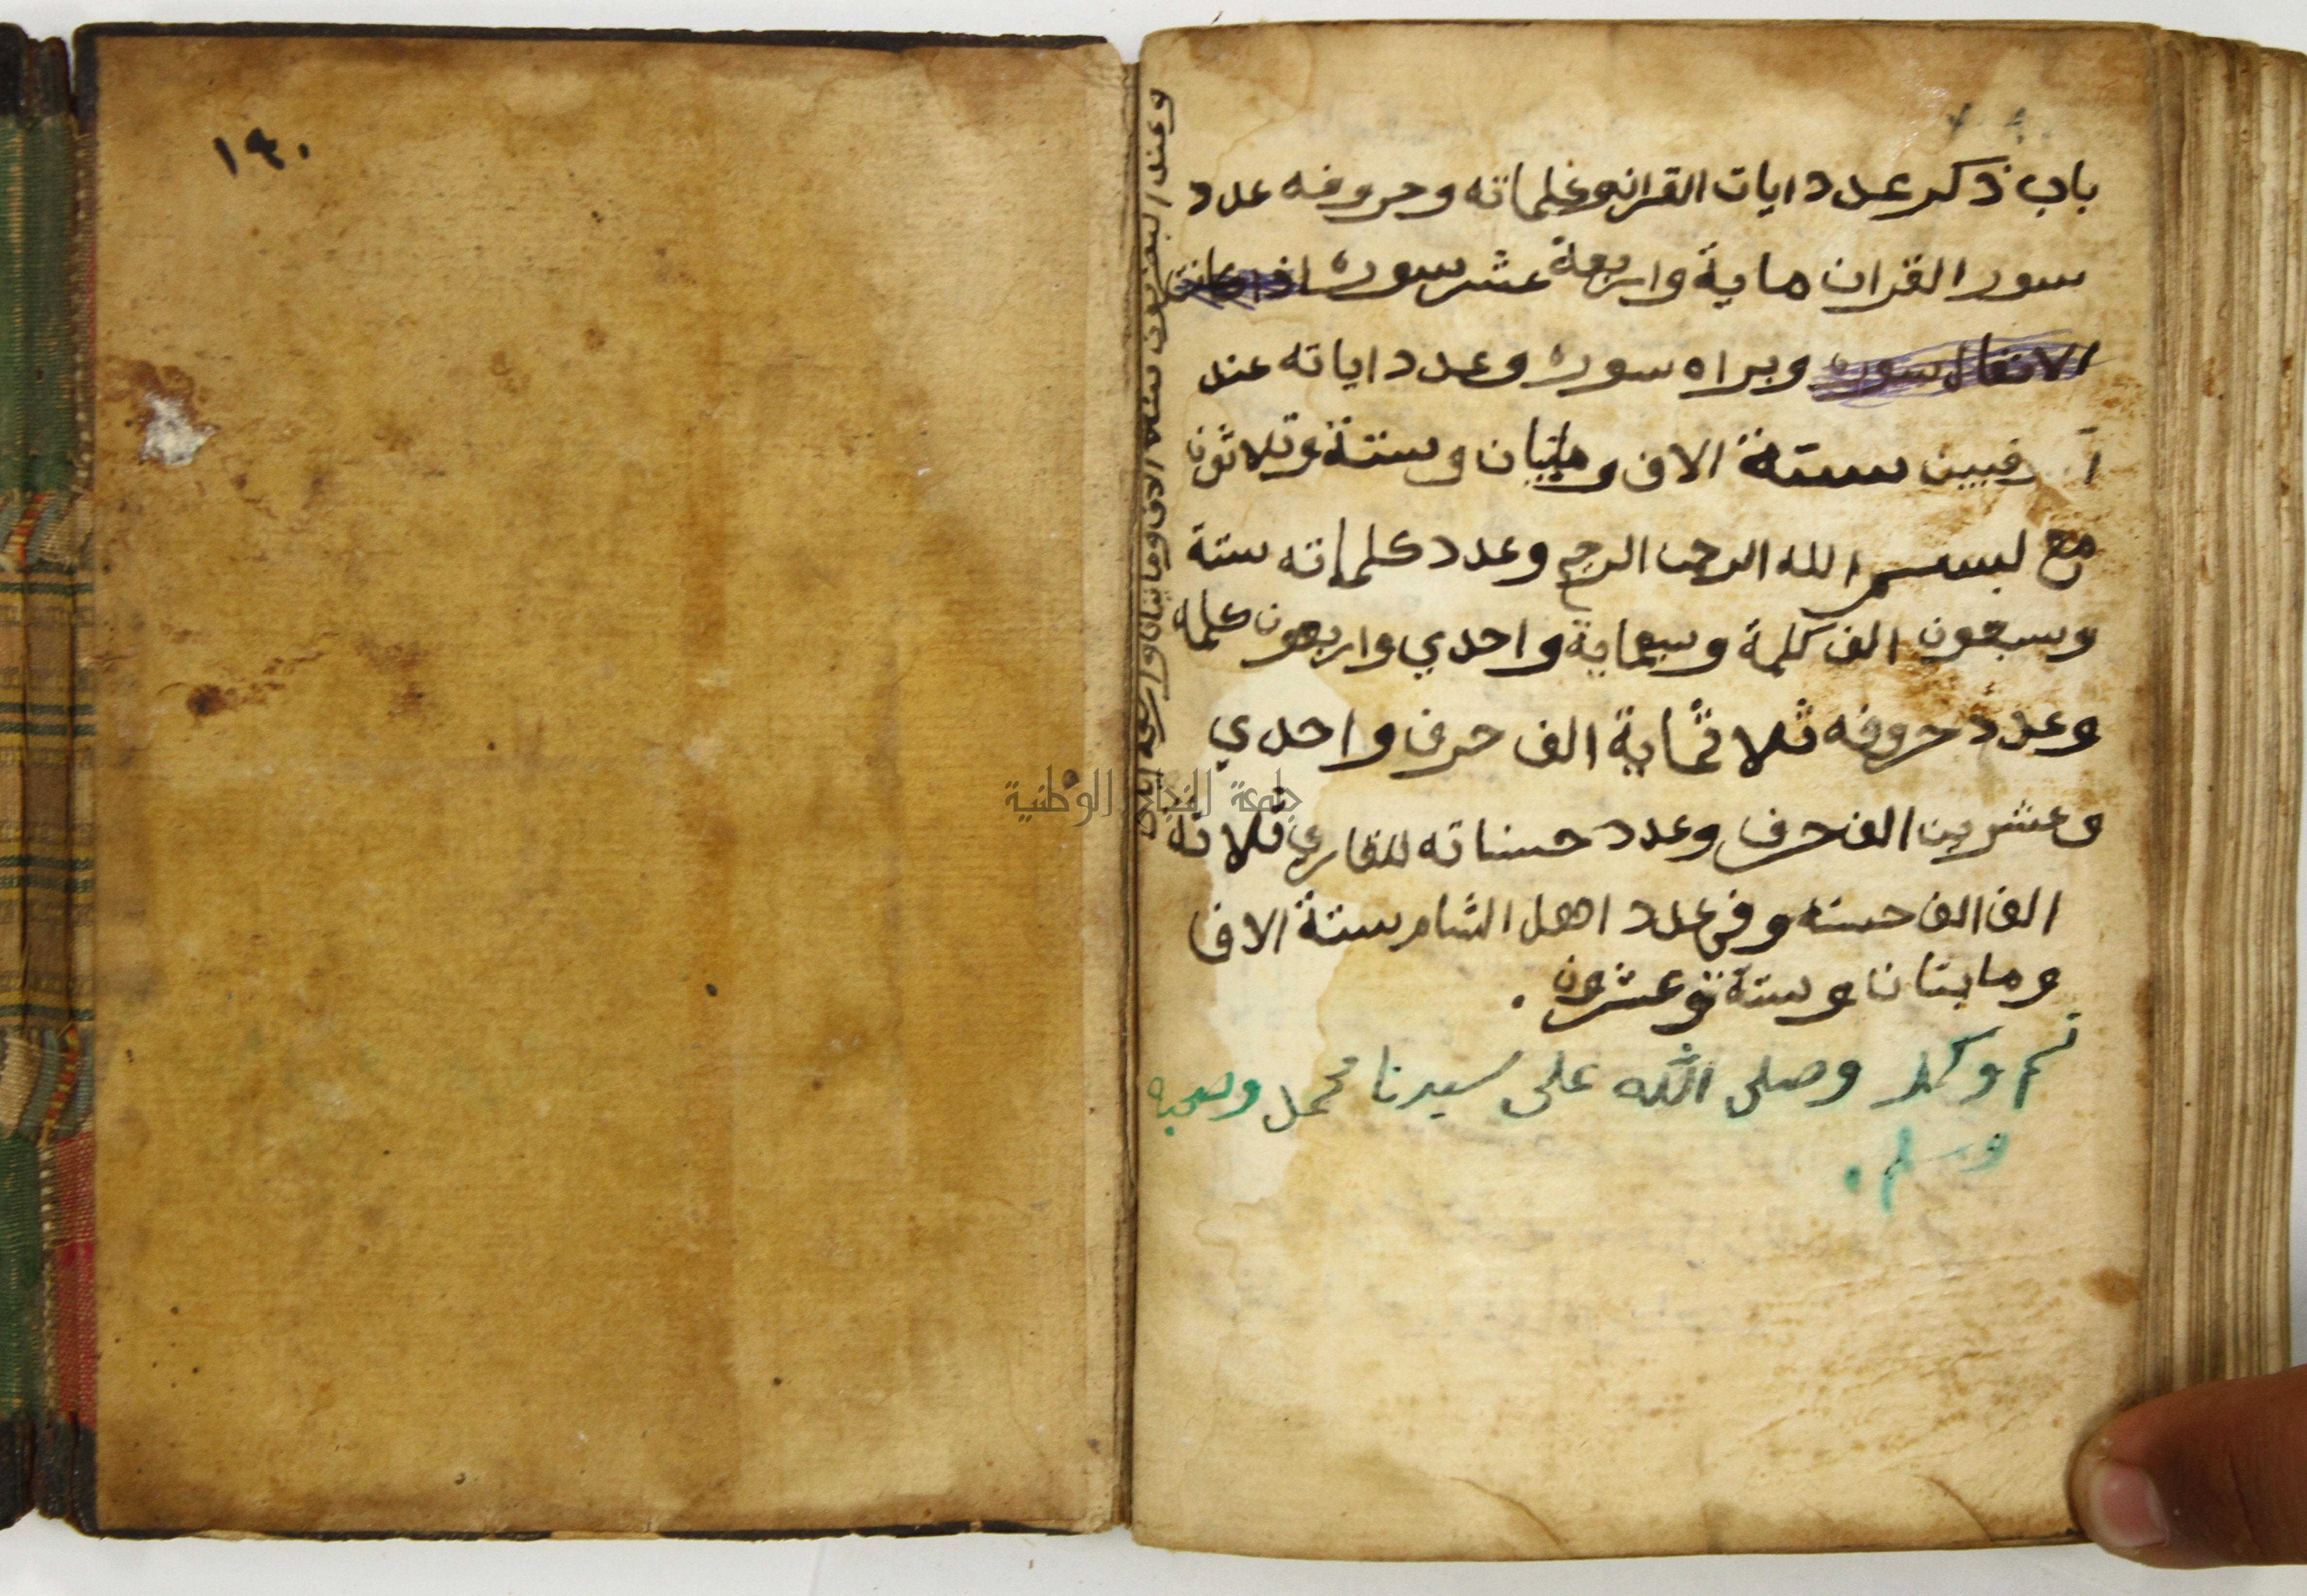 باب ذكر عدد ايات القران وكلماته وحروفه عدد
سور القران ماية واربعة عشر سوره اذا كانت
الانفال سوره وبراه سوره وعدد اياته عند
فيين ستة الاف وميتان وستة وثلاثون
مع بسم الله الرحمن الرحيم وعدد كلماته ستة
وسبعون الف كلمة وسبعماية واحدي واربعون كلمه
وعدد حروفه ثلاثماية الف حرف واحدي
وعشرين الف حرف وعدد حسناته للقاري ثلاثة
الف الف حسنه وفي عدد اهل الشام ستة الاف
ومايتان وستة وعشرون .
تم وكمل وصلى الله على سيدنا محمد وصحبه
وسلم .
وعند البصريون ستة الاف ومائتان واربعة ايات
١٩٠
جامعة النجاح الوطنية